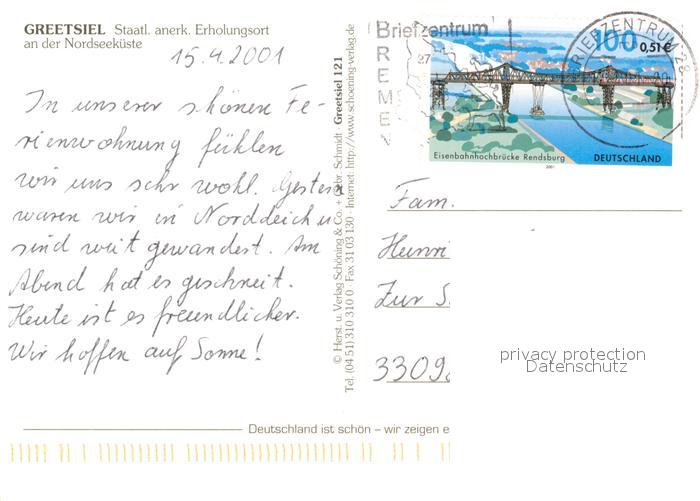 GREETSIEL Staatl. anerk. Erholungsort
an der Nordseeküste
15.4.2001
In unserer schönen Fe-
rienwohnung fühlen
wir uns sehr wohl. Gestern
waren wir in Norddeich u
sind weit gewandert. Am
Abend hat es geschneit.
Heute ist es freundlicher.
Wir hoffen auf Sonne!
© Herst. u. Verlag Schöning & Co. + Gebr. Schmidt · Greetsiel 121
Tel. (04 51) 310 310 0 · Fax 31 03 130 · Internet: http://www.schoening-verlag.de
Briefzentrum
BREMEN
27
BRIEFZENTRUM 28
100
0,51€
Eisenbahnhochbrücke Rendsburg
DEUTSCHLAND
2001
Fam.
Heinri
Zur S.
3309
privacy protection
Datenschutz
Deutschland ist schön – wir zeigen e